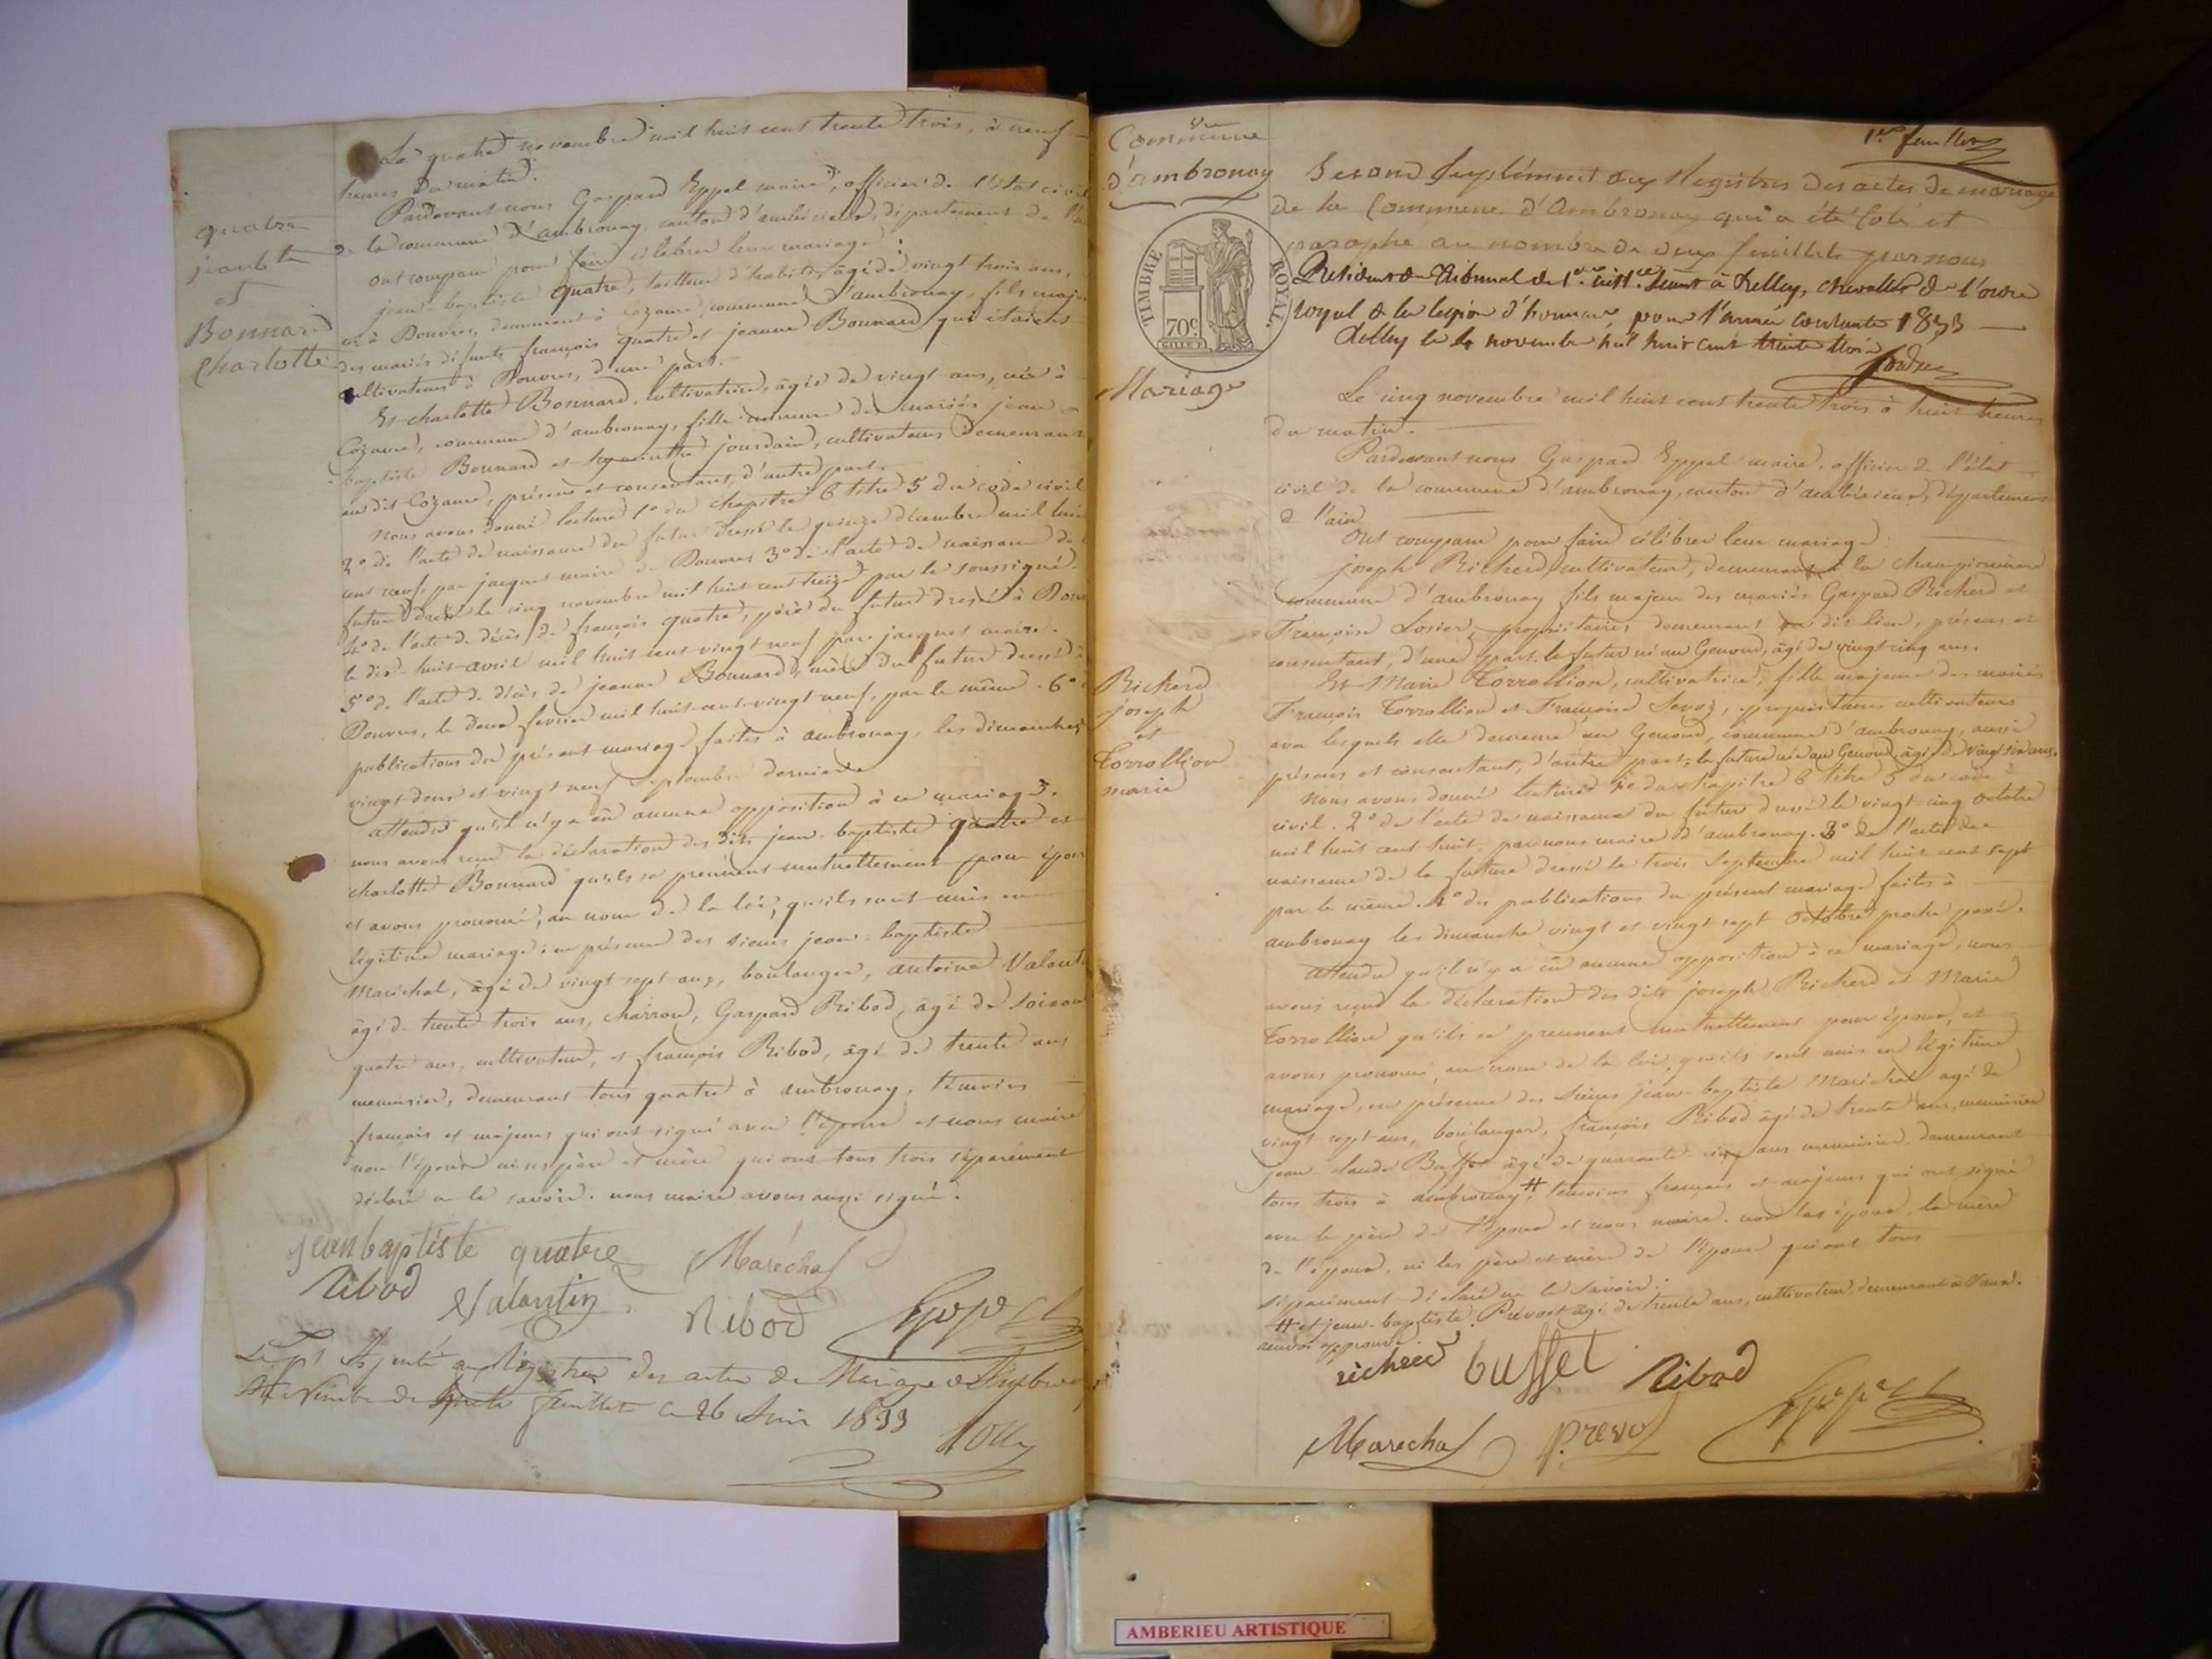 Le quatre novembre mil huit cent trente trois, à neuf
heures du matin.
Pardevant nous Gaspard Eyppel maire, officier de l'état civil
de la commune d'ambronay, canton d'ambérieux, département de l'a
ont comparu pour faire célébrer leur mariage :
jean-baptiste quatre, tailleur d'habits, âgé de vingt trois ans,
né à Douvres, demeurant à Cozance, commune d'ambronay, fils majeur
des mariés défunts françois quatre et jeanne Bonnard qui étaient
cultivateurs à Douvres, d'une part.
Et charlotte Bonnard, cultivatrice, âgée de vingt ans, née à
Cozance, commune d'ambronay, fille mineure des mariés jean-
baptiste Bonnard et hyacinthe jourdain, cultivateurs demeurant
au dit Cozance, présens et consentans, d'autre part.
nous avons donné lecture 1º du chapitre 6 titre 5 du code civil
2º de l'acte de naissance du futur dressé le quinze décembre mil huit
cent neuf, par jacquet maire de Douvres 3º de l'acte de naissance de la
future dressé le cinq novembre mil huit cent treize par le soussigné.
4º de l'acte de décès de françois quatre, père du futur dressé à Douvres
le dix-huit avril mil huit cent vingt neuf par jacquet maire.
5º de l'acte de décès de jeanne Bonnard, mère du futur dressé à
Douvres, le deux fevrier mil huit-cent-vingt-neuf, par le même. 6º des
publications du présent mariage faites à ambronay, les dimanches
vingt deux et vingt neuf septembre dernier
attendu qu'il n'y a eû aucune opposition à ce mariage,
nous avons reçu la déclaration des dits jean-baptiste quatre et
charlotte Bonnard qu'ils se prennent mutuellement pour époux
et avons prononcé, au nom de la loi, qu'ils sont unis en
légitime mariage ; en présence des sieurs jean-baptiste
Maréchal, âgé de vingt sept ans, boulanger, antoine Valentin
âgé de trente trois ans, charron, Gaspard Ribod, âgé de soixante
quatre ans, cultivateur, et françois Ribod, âgé de trente ans
menuisier, demeurant tous quatre à ambronay, témoins
français et majeurs qui ont signé avec l'époux et nous maire
non l'épouse ni ses père et mère qui ont tous trois séparément
déclaré ne le savoir. nous maire avons aussi signé.
quatre
jeanbte
et
Bonnard
Charlotte
jeanbaptiste quatre Maréchal
Ribod Valantin Ribod Eyppel
des actes de Mariage
feuillets 1833
Commune
d'ambronay
1er feuillet
Second Suplément aux Registres des actes de mariage
de la Commune d'Ambronay qui a été Coté et
paraphé au nombre de deux feuillets par nous
Président du Tribunal de 1ere inst.ce séant à Belley, chevallier de l'ordre
royal de la légion d'honneur, pour l'année courante 1833
Belley le 4 novembre mil huit cent trente trois
TIMBRE ROYAL.
70c
Mariage
Le cinq novembre mil huit cent trente trois à huit heures
du matin.
Pardevant nous Gaspard Eyppel maire, officier de l'état
civil de la commune d'ambronay, canton d'ambérieux, département
de l'ain
Ont comparu pour faire célébrer leur mariage :
joseph Richerd, cultivateur, demeurant à la
commune d'ambronay fils majeur des mariés Gaspard Richerd et
Françoise Losier, propriétaires demeurant au dit lieu, présens et
consentant, d'une part. le futur né au Genoud, âgé de vingt-cinq ans.
Et Marie Torrollion, cultivatrice, fille majeure des mariés
François Torrollion et Françoise Sevoz, propriétaires cultivateurs
avec lesquels elle demeure au Genoud, commune d'ambronay, aussi
présens et consentant, d'autre part ; la future née au Genoud, âgée de vingt six ans.
nous avons donné lecture 1º du chapitre 6 titre 5 du code
civil. 2º de l'acte de naissance du futur dressé le vingt-cinq octobre
mil huit cent huit, par nous maire d'ambronay. 3º de l'acte de
naissance de la future dressé le trois Septembre mil huit cent sept
par le même. 4º des publications du présent mariage faites à
ambronay les dimanche vingt et vingt sept Octobre proche passé.
attendu qu'il n'y a eû aucune opposition à ce mariage, nous
avons reçu la déclaration des dits joseph Richerd et Marie
Torrollion qu'ils se prennent mutuellement pour époux, et
avons prononcé, au nom de la loi, qu'ils sont unis en légitime
mariage, en présence des Sieurs jean-baptiste Maréchal agé de
vingt sept ans, boulanger, françois Ribod âgé de trente ans, menuisier
jean-claude Buffet âgé de quarante-cinq ans menuisier, demeurant
tous trois à ambronay #, témoins français et majeurs qui ont signé
avec le père de l'époux et nous maire. non les époux, la mère
de l'époux, ni les père et mère de l'épouse qui ont tous
séparément déclaré ne le savoir.
# et jean-baptiste Prévost âgé de trente ans, cultivateur, demeurant à Vaux.
renvoi approuvé.
Richerd
joseph
et
Torrollion
marie
richerd buffet Ribod
Maréchal prevost Eyppel
AMBERIEU ARTISTIQUE